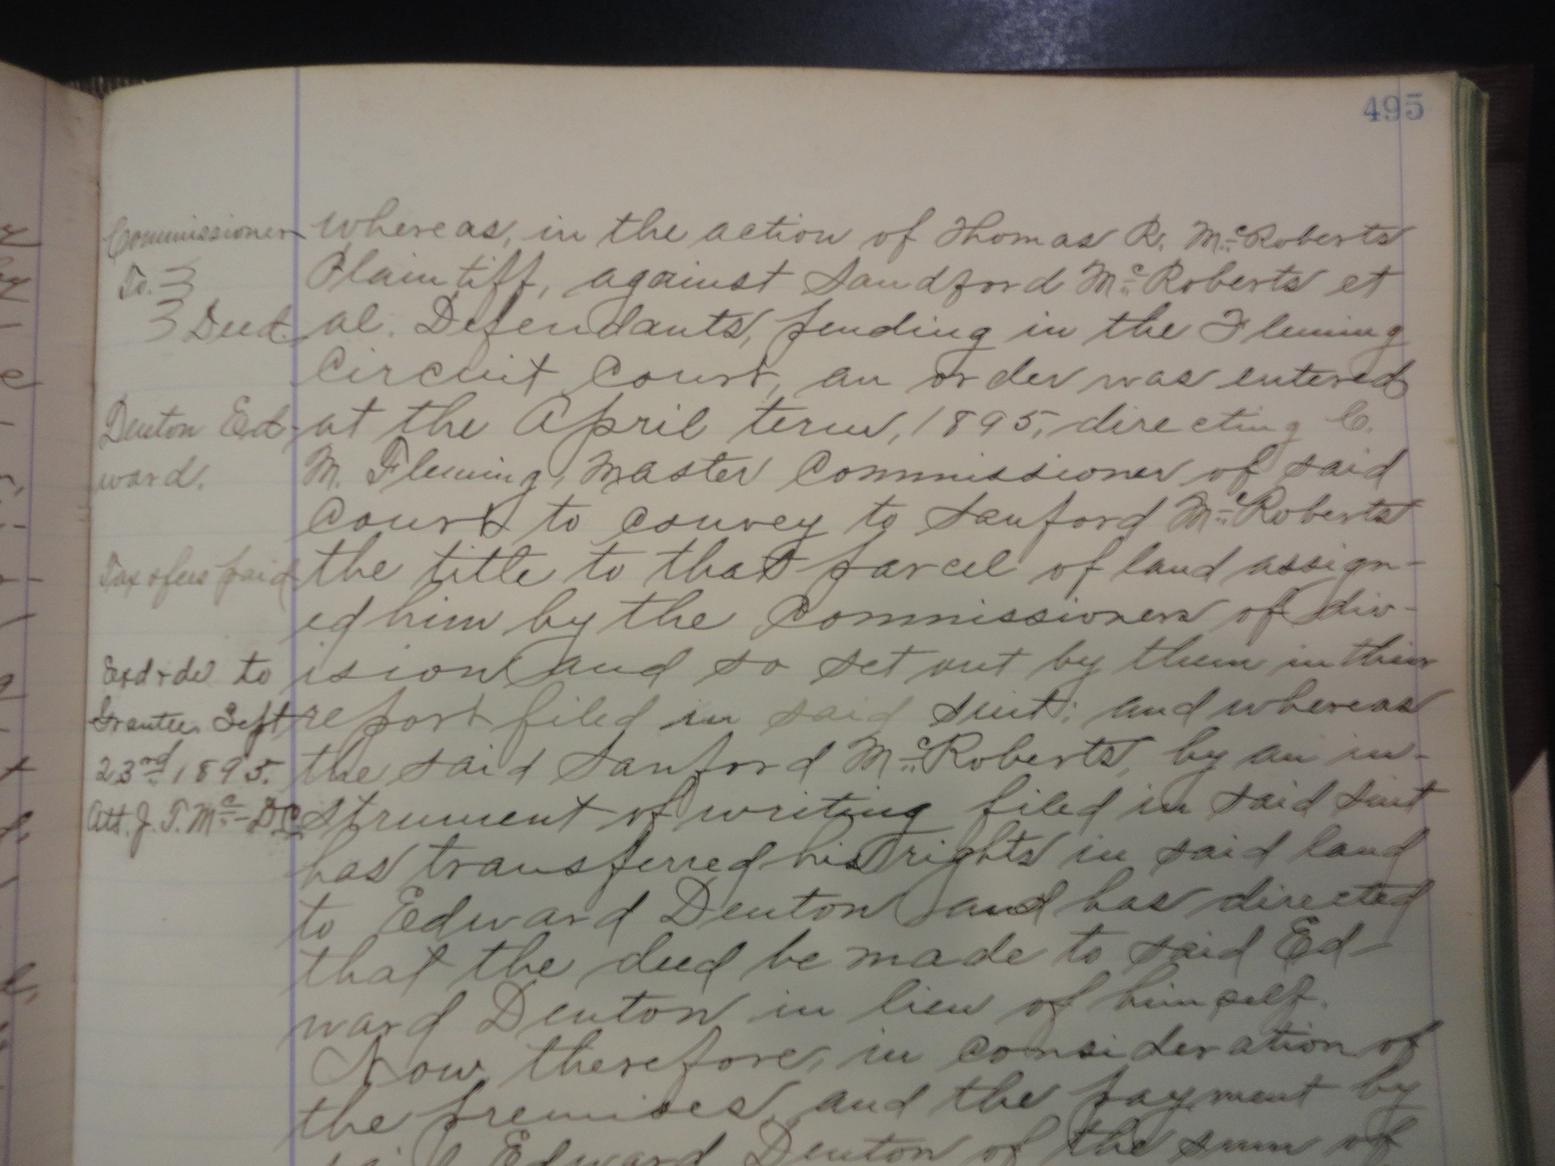 495
Commissioner
To. 3
3 Deed
Denton Ed-
ward.
Tax & fees paid
Exd & del to
Grantee Sept
23rd, 1895.
Att. J. T. Mc- D.C.
Whereas, in the action of Thomas R. McRoberts
Plaintiff, against Sandford McRoberts et
al. Defendants, pending in the Fleming
Circuit Court, an order was entered
at the April term, 1895, directing C.
M. Fleming, Master Commissioner of said
Court to convey to Sanford McRoberts
the title to that parcel of land assign-
ed him by the Commissioners of div-
ision and so set out by them in their
report filed in said suit; and whereas
the said Sanford McRoberts, by an in-
strument of writing filed in said suit
has transferred his rights in said land
to Edward Denton and has directed
that the deed be made to said Ed-
ward Denton in lieu of himself.
Now, therefore, in consideration of
the premises, and the payment by
said Edward Denton of the sum of